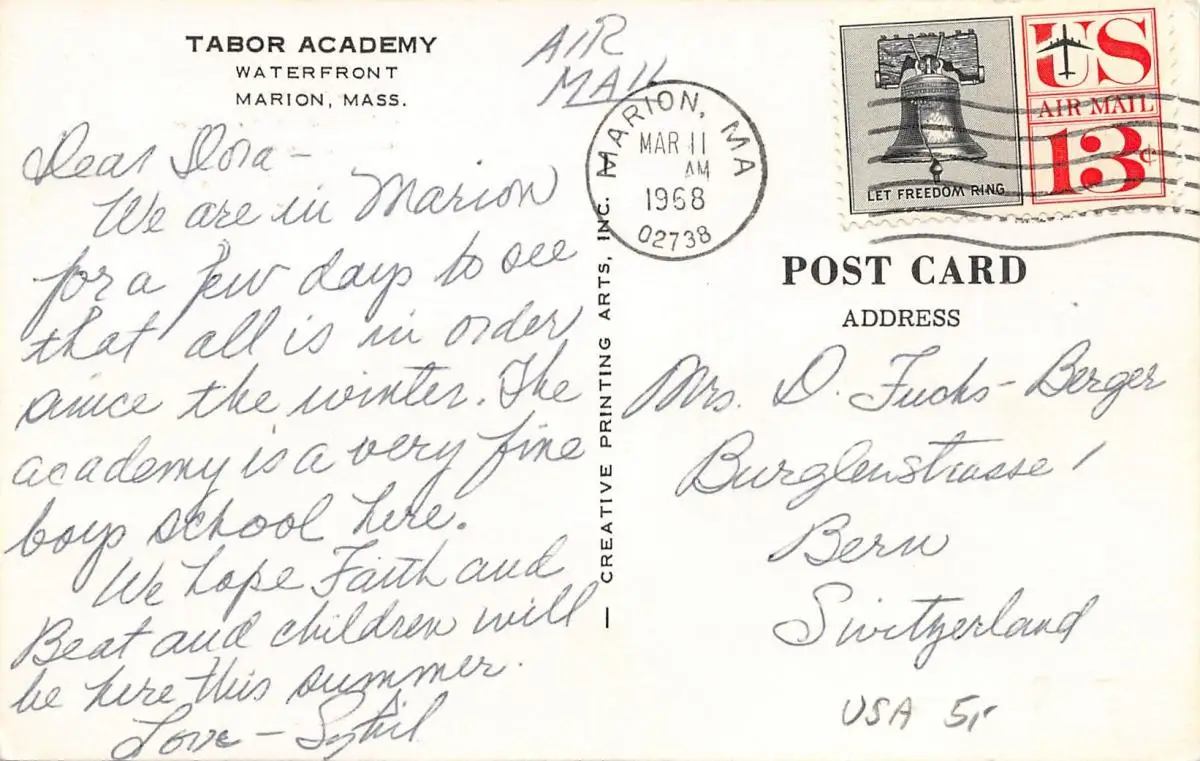 TABOR ACADEMY
WATERFRONT
MARION, MASS.
AIR
MAIL
Dear Dora –
We are in Marion
for a few days to see
that all is in order
since the winter. The
academy is a very fine
boys school here.
We hope Faith and
Beat and children will
be here this summer.
Love – Sybil
— CREATIVE PRINTING ARTS, INC.
MARION, MA
MAR 11
AM
1968
02738
LET FREEDOM RING
US
AIR MAIL
13¢
POST CARD
ADDRESS
Mrs. D. Fuchs-Berger
Burglenstrasse 1
Bern
Switzerland
USA 5,-